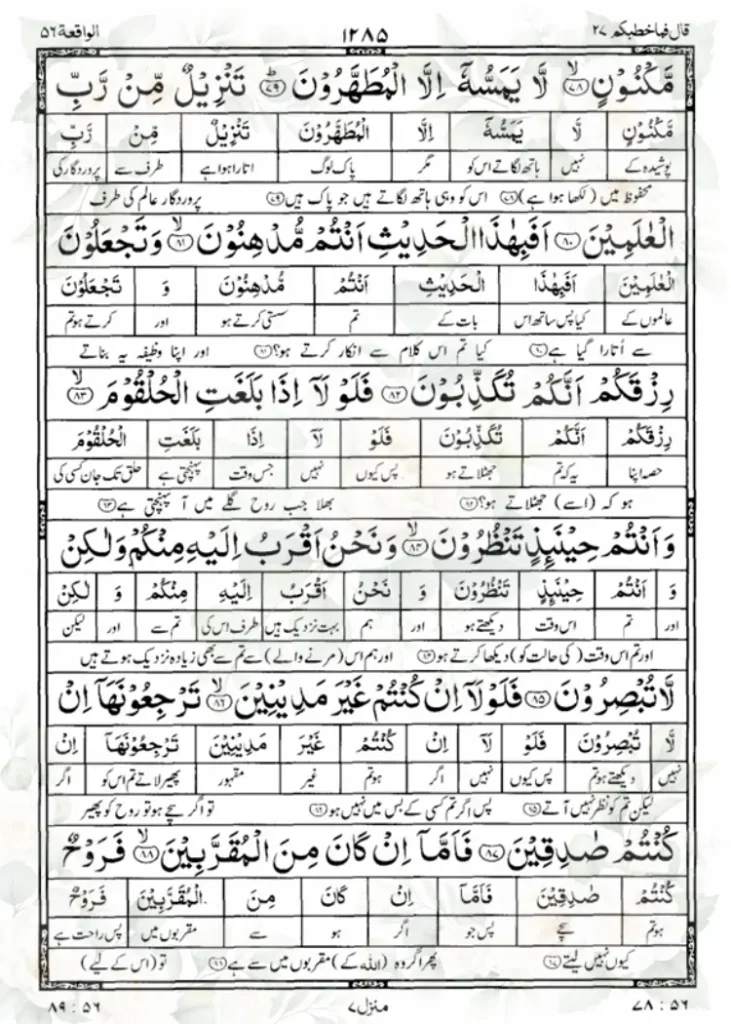 قال فماخطبكم ٢٧ ١٢٨٥ الواقعة ٥٦
مَّكْنُوْنٍ ﴿٧٨﴾ لَّا يَمَسُّهٗٓ اِلَّا الْمُطَهَّرُوْنَ ﴿٧٩﴾ تَنْزِيْلٌ مِّنْ رَّبِّ
مَّكْنُوْنٍ لَّا يَمَسُّهٗٓ اِلَّا الْمُطَهَّرُوْنَ تَنْزِيْلٌ مِّنْ رَّبِّ
پوشیدہ کے نہیں ہاتھ لگاتے اس کو مگر پاک لوگ اتارا ہوا ہے طرف سے پروردگار کی
محفوظ میں (لکھا ہوا ہے) ﴿٧٨﴾ اس کو وہی ہاتھ لگاتے ہیں جو پاک ہیں ﴿٧٩﴾ پروردگار عالم کی طرف
الْعٰلَمِيْنَ ﴿٨٠﴾ اَفَبِهٰذَا الْحَدِيْثِ اَنْتُمْ مُّدْهِنُوْنَ ﴿٨١﴾ وَتَجْعَلُوْنَ
الْعٰلَمِيْنَ اَفَبِهٰذَا الْحَدِيْثِ اَنْتُمْ مُّدْهِنُوْنَ وَ تَجْعَلُوْنَ
عالموں کے کیا پس ساتھ اس بات کے تم سستی کرتے ہو اور کرتے ہو تم
سے اُتارا گیا ہے ﴿٨٠﴾ کیا تم اس کلام سے انکار کرتے ہو؟ ﴿٨١﴾ اور اپنا وظیفہ یہ بناتے
رِزْقَكُمْ اَنَّكُمْ تُكَذِّبُوْنَ ﴿٨٢﴾ فَلَوْ لَآ اِذَا بَلَغَتِ الْحُلْقُوْمَ ﴿٨٣﴾
رِزْقَكُمْ اَنَّكُمْ تُكَذِّبُوْنَ فَلَوْ لَآ اِذَا بَلَغَتِ الْحُلْقُوْمَ
حصہ اپنا یہ کہ تم جھٹلاتے ہو پس کیوں نہیں جس وقت پہنچتی ہے حلق تک جان کسی کی
ہو کہ (اسے) جھٹلاتے ہو؟ ﴿٨٢﴾ بھلا جب روح گلے میں آ پہنچتی ہے ﴿٨٣﴾
وَ اَنْتُمْ حِيْنَئِذٍ تَنْظُرُوْنَ ﴿٨٤﴾ وَنَحْنُ اَقْرَبُ اِلَيْهِ مِنْكُمْ وَلٰكِنْ
وَ اَنْتُمْ حِيْنَئِذٍ تَنْظُرُوْنَ وَ نَحْنُ اَقْرَبُ اِلَيْهِ مِنْكُمْ وَ لٰكِنْ
اور تم اس وقت دیکھتے ہو اور ہم بہت نزدیک ہیں طرف اس کی تم سے اور لیکن
اور تم اس وقت (کی حالت کو) دیکھا کرتے ہو ﴿٨٤﴾ اور ہم اس (مرنے والے) سے تم سے بھی زیادہ نزدیک ہوتے ہیں
لَّا تُبْصِرُوْنَ ﴿٨٥﴾ فَلَوْلَآ اِنْ كُنْتُمْ غَيْرَ مَدِيْنِيْنَ ﴿٨٦﴾ تَرْجِعُوْنَهَآ اِنْ
لَّا تُبْصِرُوْنَ فَلَوْ لَآ اِنْ كُنْتُمْ غَيْرَ مَدِيْنِيْنَ تَرْجِعُوْنَهَآ اِنْ
نہیں دیکھتے ہو تم پس کیوں نہیں اگر ہو تم غیر مقہور پھیر لاتے تم اس کو اگر
لیکن تم کو نظر نہیں آتے ﴿٨٥﴾ پس اگر تم کسی کے بس میں نہیں ہو ﴿٨٦﴾ تو اگر سچے ہو تو روح کو پھیر
كُنْتُمْ صٰدِقِيْنَ ﴿٨٧﴾ فَاَمَّآ اِنْ كَانَ مِنَ الْمُقَرَّبِيْنَ ﴿٨٨﴾ فَرَوْحٌ
كُنْتُمْ صٰدِقِيْنَ فَاَمَّآ اِنْ كَانَ مِنَ الْمُقَرَّبِيْنَ فَرَوْحٌ
ہو تم سچے پس جو اگر ہو سے مقربوں میں پس راحت ہے
کیوں نہیں لیتے ﴿٨٧﴾ پھر اگر وہ (اللہ کے) مقربوں میں سے ہے ﴿٨٨﴾ تو (اس کے لیے)
٧٨ : ٥٦ منزل ٧ ٨٩ : ٥٦